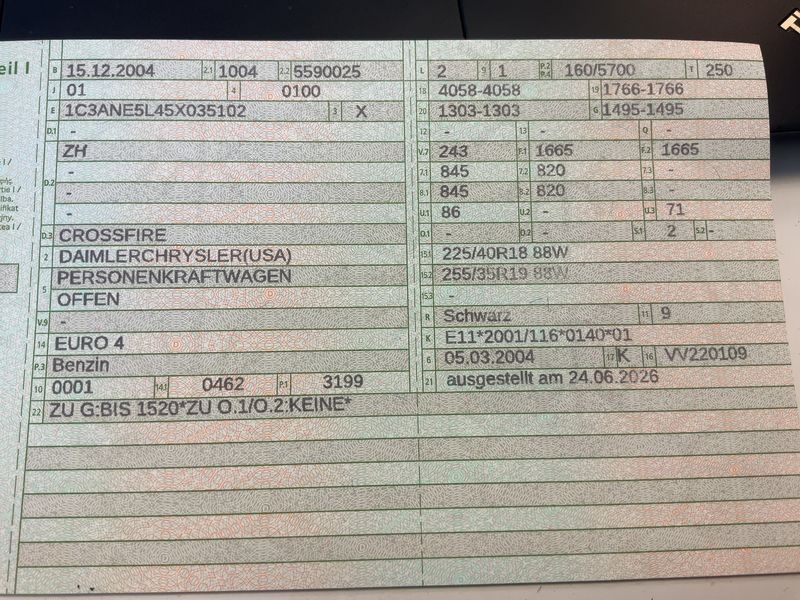 eil I
B 15.12.2004 2.1 1004 2.2 5590025
J 01 4 0100
E 1C3ANE5L45X035102 3 X
D.1 -
D.2 ZH
-
-
-
D.3 CROSSFIRE
2 DAIMLERCHRYSLER(USA)
5 PERSONENKRAFTWAGEN
OFFEN
V.9 -
14 EURO 4
P.3 Benzin
10 0001 14.1 0462 P.1 3199
22 ZU G:BIS 1520*ZU O.1/O.2:KEINE*
L 2 9 1 P.2 P.4 160/5700 T 250
18 4058-4058 19 1766-1766
20 1303-1303 G 1495-1495
12 - 13 - Q -
V.7 243 F.1 1665 F.2 1665
7.1 845 7.2 820 7.3 -
8.1 845 8.2 820 8.3 -
U.1 86 U.2 - U.3 71
O.1 - O.2 - S.1 2 S.2 -
15.1 225/40R18 88W
15.2 255/35R19 88W
15.3 -
R Schwarz 11 9
K E11*2001/116*0140*01
6 05.03.2004 17 K 16 VV220109
21 ausgestellt am 24.06.2026